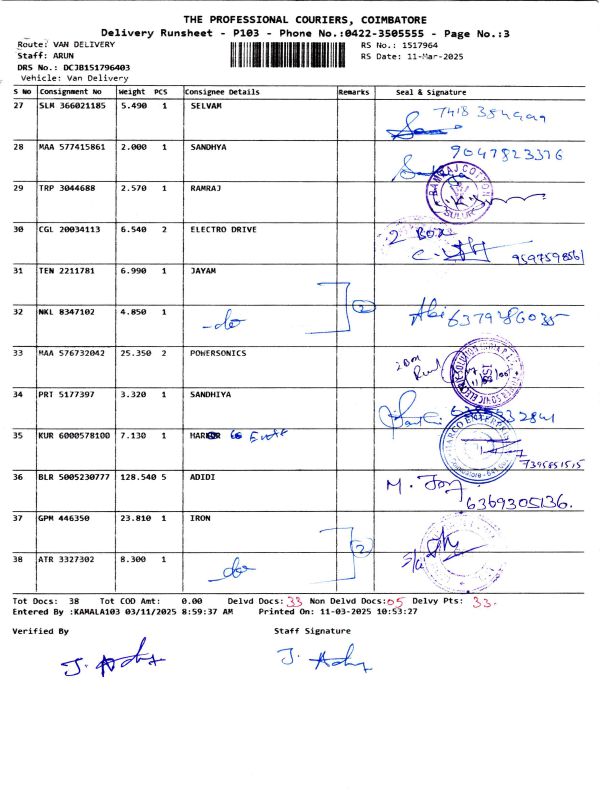 THE PROFESSIONAL COURIERS, COIMBATORE
Delivery Runsheet - P103 - Phone No.:0422-3505555 - Page No.:3
Route: VAN DELIVERY RS No.: 1517964
Staff: ARUN RS Date: 11-Mar-2025
DRS No.: DCJB151796403
Vehicle: Van Delivery
S No Consignment No Weight PCS Consignee Details Remarks Seal & Signature
27 SLM 366021185 5.490 1 SELVAM
28 MAA 577415861 2.000 1 SANDHYA 9047823376
29 TRP 3044688 2.570 1 RAMRAJ RAMRAJ COTTON SULUR
30 CGL 20034113 6.540 2 ELECTRO DRIVE 2 Box 9597598561
31 TEN 2211781 6.990 1 JAYAM
32 NKL 8347102 4.850 1 -do 2 Abi 6379286035
33 MAA 576732042 25.350 2 POWERSONICS
34 PRT 5177397 3.320 1 SANDHIYA
35 KUR 6000578100 7.130 1 7395851515
36 BLR 5005230777 128.540 5 ADIDI M. 6369305136.
37 GPM 446350 23.810 1 IRON
38 ATR 3327302 8.300 1 do 2
Tot Docs: 38 Tot COD Amt: 0.00 Delvd Docs: 33 Non Delvd Docs: 05 Delvy Pts: 33.
Entered By :KAMALA103 03/11/2025 8:59:37 AM Printed On: 11-03-2025 10:53:27
Verified By Staff Signature